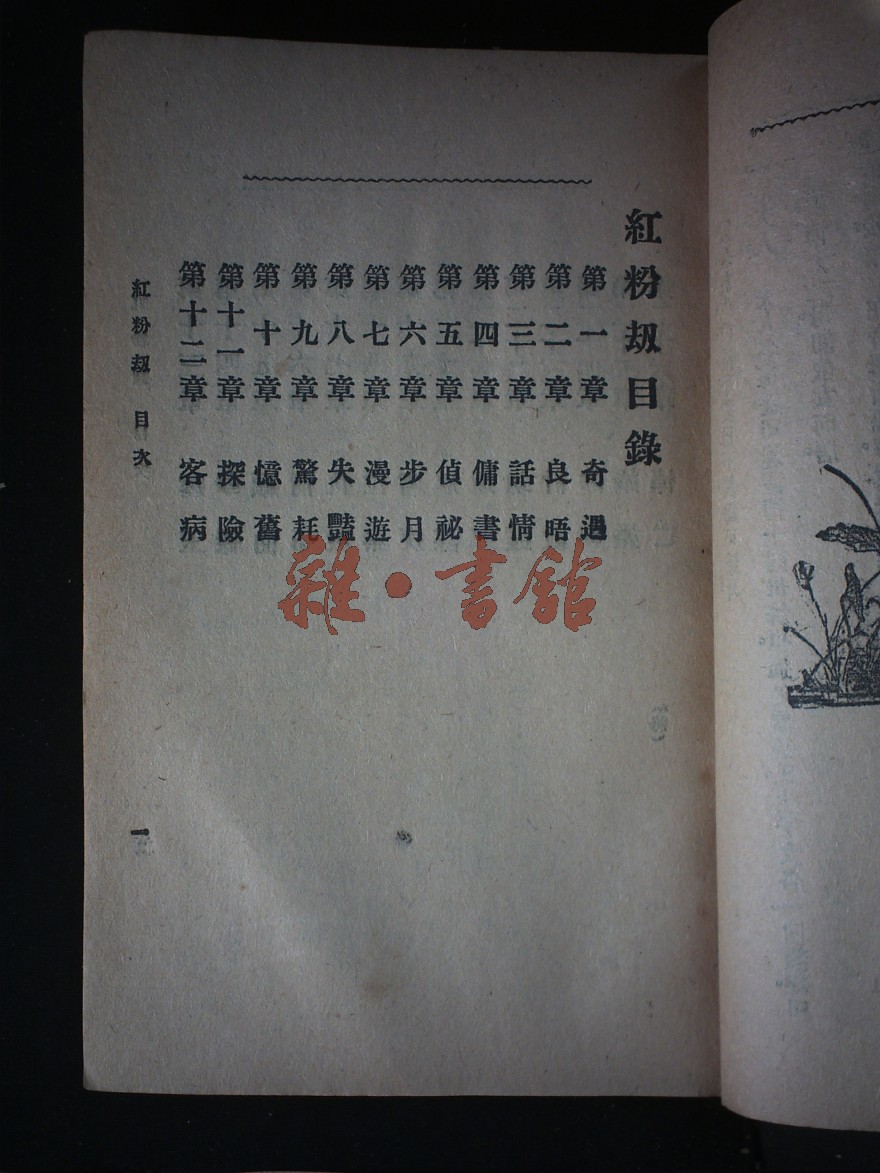 紅粉刼目錄
第一章 奇遇
第二章 良晤
第三章 話情
第四章 傭書
第五章 偵祕
第六章 步月
第七章 漫遊
第八章 失豔
第九章 驚耗
第十章 憶舊
第十一章 探險
第十二章 客病
紅粉刼 目次
一
雜·書館